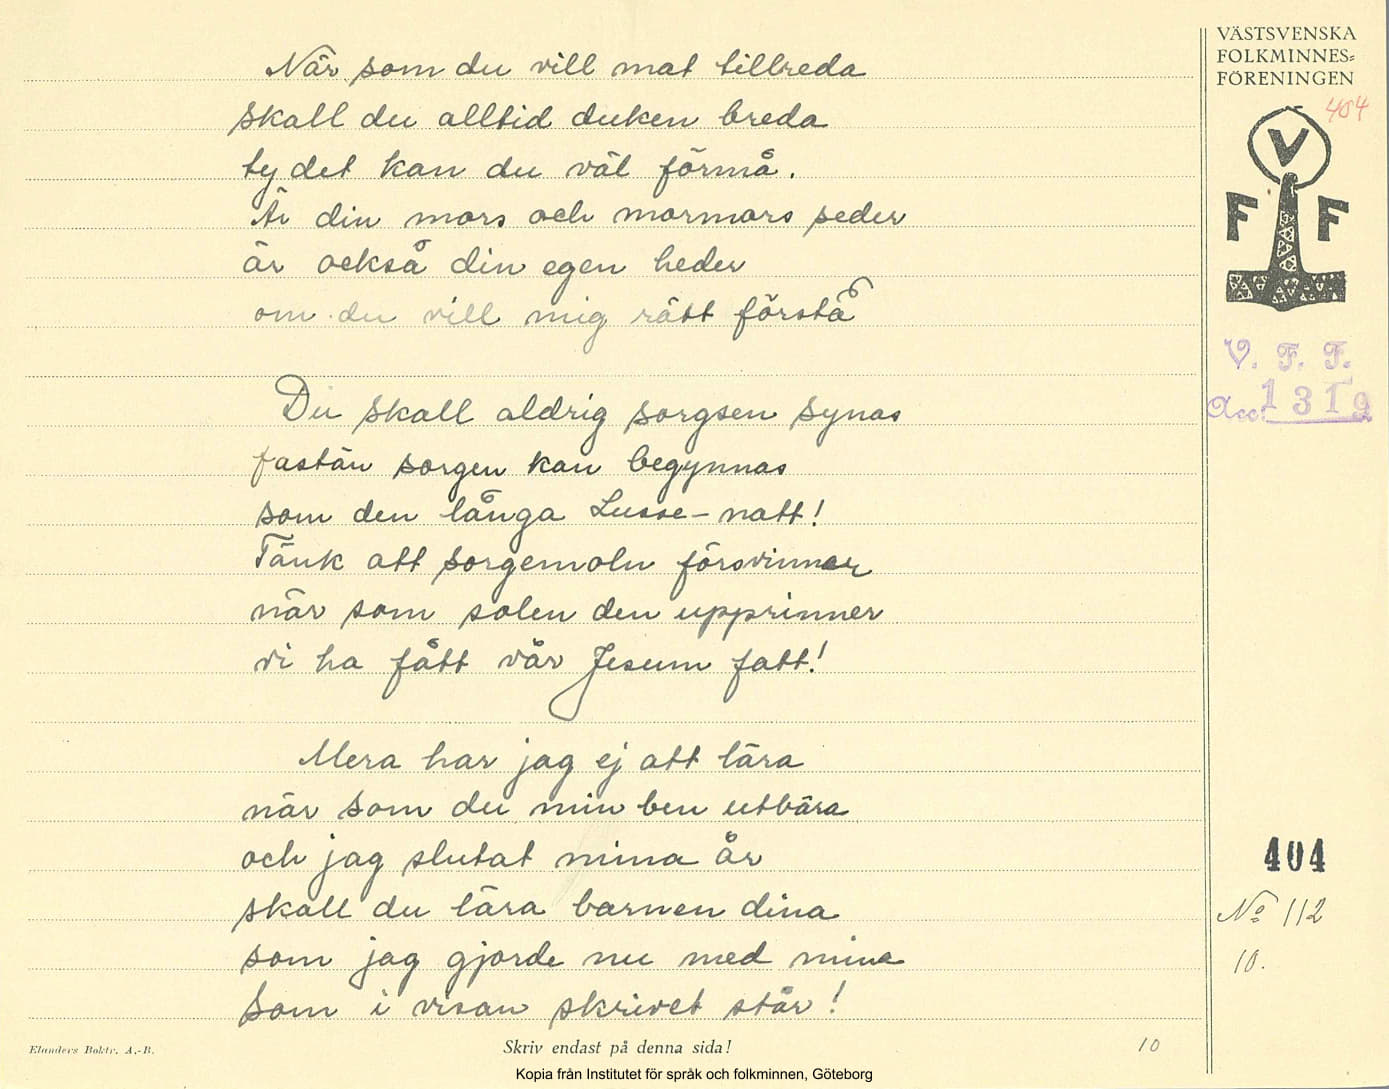 VÄSTSVENSKA
FOLKMINNES-
FÖRENINGEN
404
V
F F
V. F. F.
Acc. 1319
När som du vill mat tillreda
skall du alltid duken breda
ty det kan du väl förmå.
Är din mors och mormors seder
är också din egen heder
om du vill mig rätt förstå
Du skall aldrig sorgsen synas
fastän sorgen kan begynnas
som den långa Lusse-natt!
Tänk att sorgemoln försvinner
när som solen den upprinner
vi ha fått vår Jesum fatt!
Mera har jag ej att lära
när som du min ben utbära
och jag slutat mina år
skall du lära barnen dina
som jag gjorde nu med mina
som i visan skrivet står!
404
No 112
10.
Elanders Boktr. A.-B.
Skriv endast på denna sida!
10
Kopia från Institutet för språk och folkminnen, Göteborg